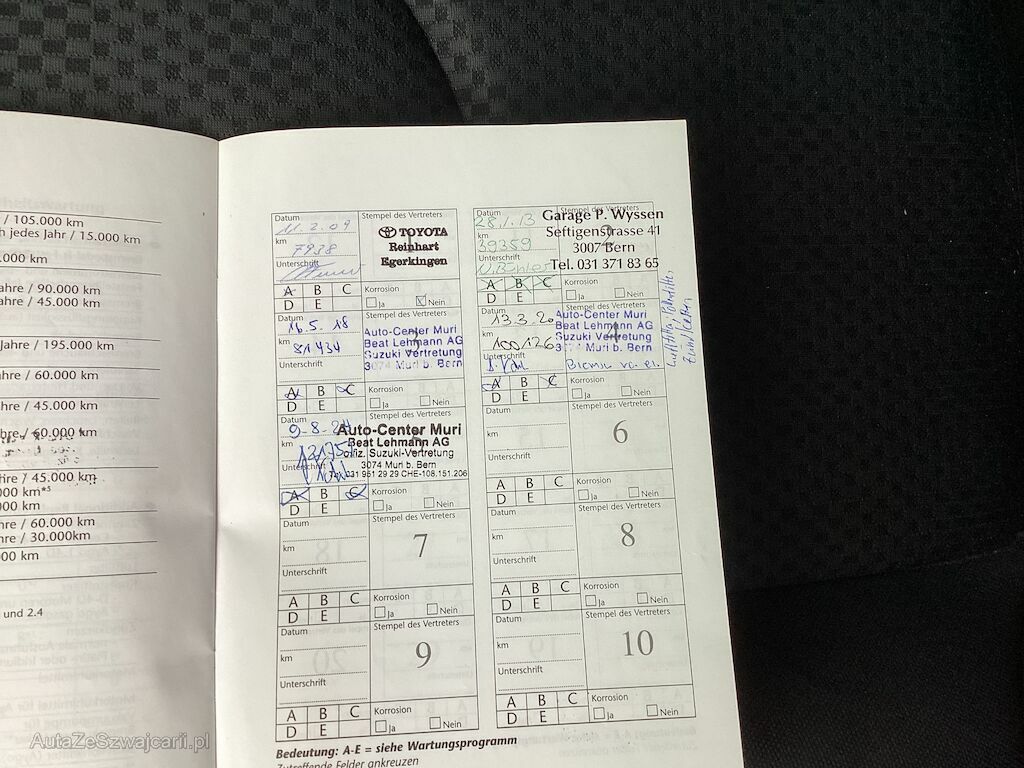 / 105.000 km
h jedes Jahr / 15.000 km
.000 km
ahre / 90.000 km
ahre / 45.000 km
Jahre / 195.000 km
hre / 60.000 km
hre / 45.000 km
hre / 60.000 km
hre / 45.000 km
km*⁵
00 km
hre / 60.000 km
hre / 30.000km
00 km
und 2.4
Datum
11.2.09
km
7938
Unterschrift
Stempel des Vertreters
1
TOYOTA
Reinhart
Egerkingen
A B C
D E
Korrosion
Ja Nein
Datum
28.1.13
km
39359
Unterschrift
Stempel des Vertreters
2
Garage P. Wyssen
Seftigenstrasse 41
3007 Bern
Tel. 031 371 83 65
A B C
D E
Korrosion
Ja Nein
Datum
16.5.18
km
81434
Unterschrift
Stempel des Vertreters
3
Auto-Center Muri
Beat Lehmann AG
Suzuki Vertretung
3074 Muri b. Bern
A B C
D E
Korrosion
Ja Nein
Datum
13.3.20
km
100126
Unterschrift
Stempel des Vertreters
4
Auto-Center Muri
Beat Lehmann AG
Suzuki Vertretung
3074 Muri b. Bern
A B C
D E
Korrosion
Ja Nein
Datum
9-8-21
km
Unterschrift
Stempel des Vertreters
5
Auto-Center Muri
Beat Lehmann AG
offiz. Suzuki-Vertretung
3074 Muri b. Bern
Tel. 031 951 29 29 CHE-108.151.206
A B C
D E
Korrosion
Ja Nein
Datum
km
Unterschrift
Stempel des Vertreters
6
A B C
D E
Korrosion
Ja Nein
Datum
km
Unterschrift
Stempel des Vertreters
7
A B C
D E
Korrosion
Ja Nein
Datum
km
Unterschrift
Stempel des Vertreters
8
A B C
D E
Korrosion
Ja Nein
Datum
km
Unterschrift
Stempel des Vertreters
9
A B C
D E
Korrosion
Ja Nein
Datum
km
Unterschrift
Stempel des Vertreters
10
A B C
D E
Korrosion
Ja Nein
Bedeutung: A-E = siehe Wartungsprogramm
Zutreffende Felder ankreuzen
AutaZeSzwajcarii.pl